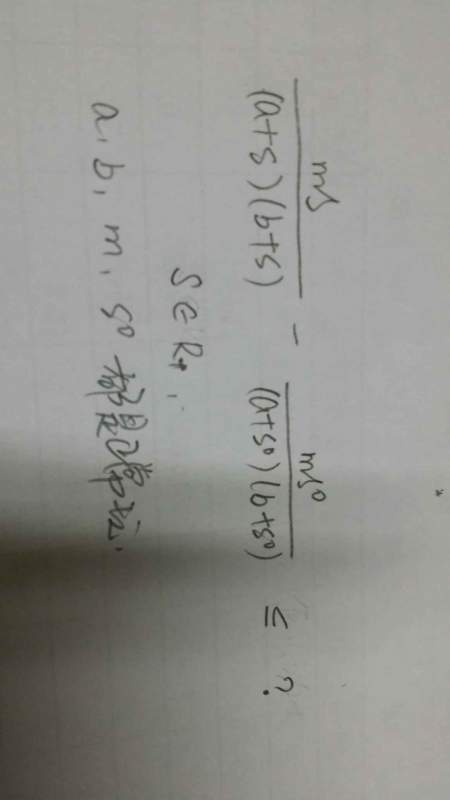 mS/((a+S)(b+S)) − mS⁰/((a+S⁰)(b+S⁰)) ≤ ?
S∈R₊,
a, b, m, S⁰ 都是正常数.